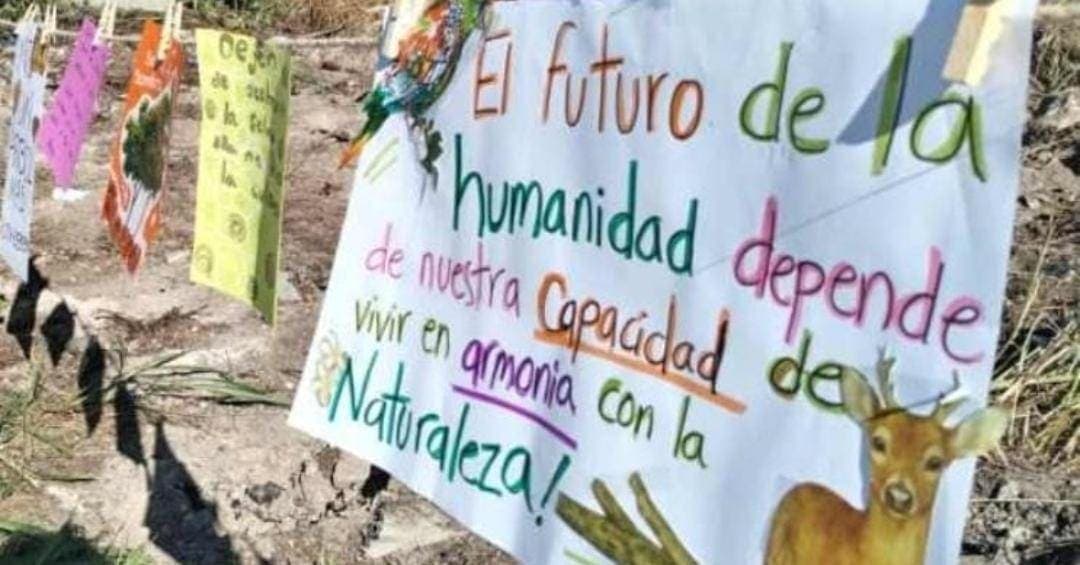 El futuro de la
humanidad depende
de nuestra Capacidad de
vivir en armonia con la
Naturaleza!